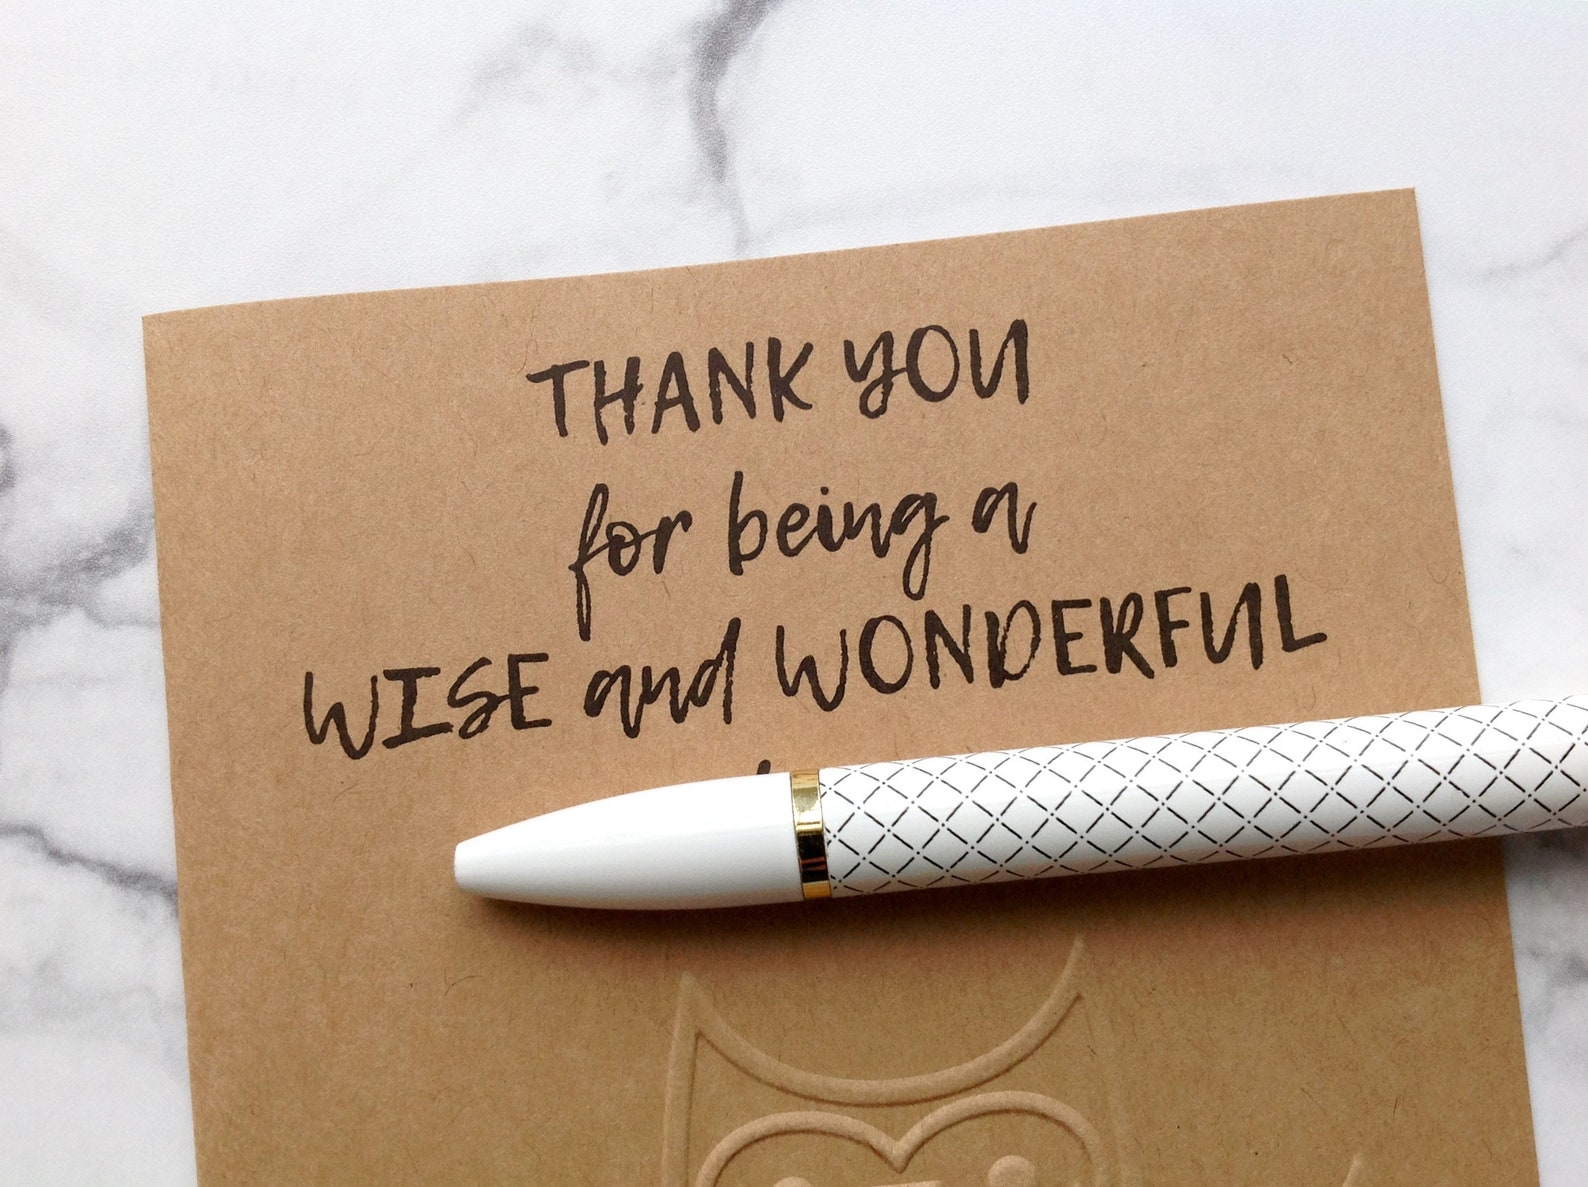 THANK YOU
for being a
WISE and WONDERFUL